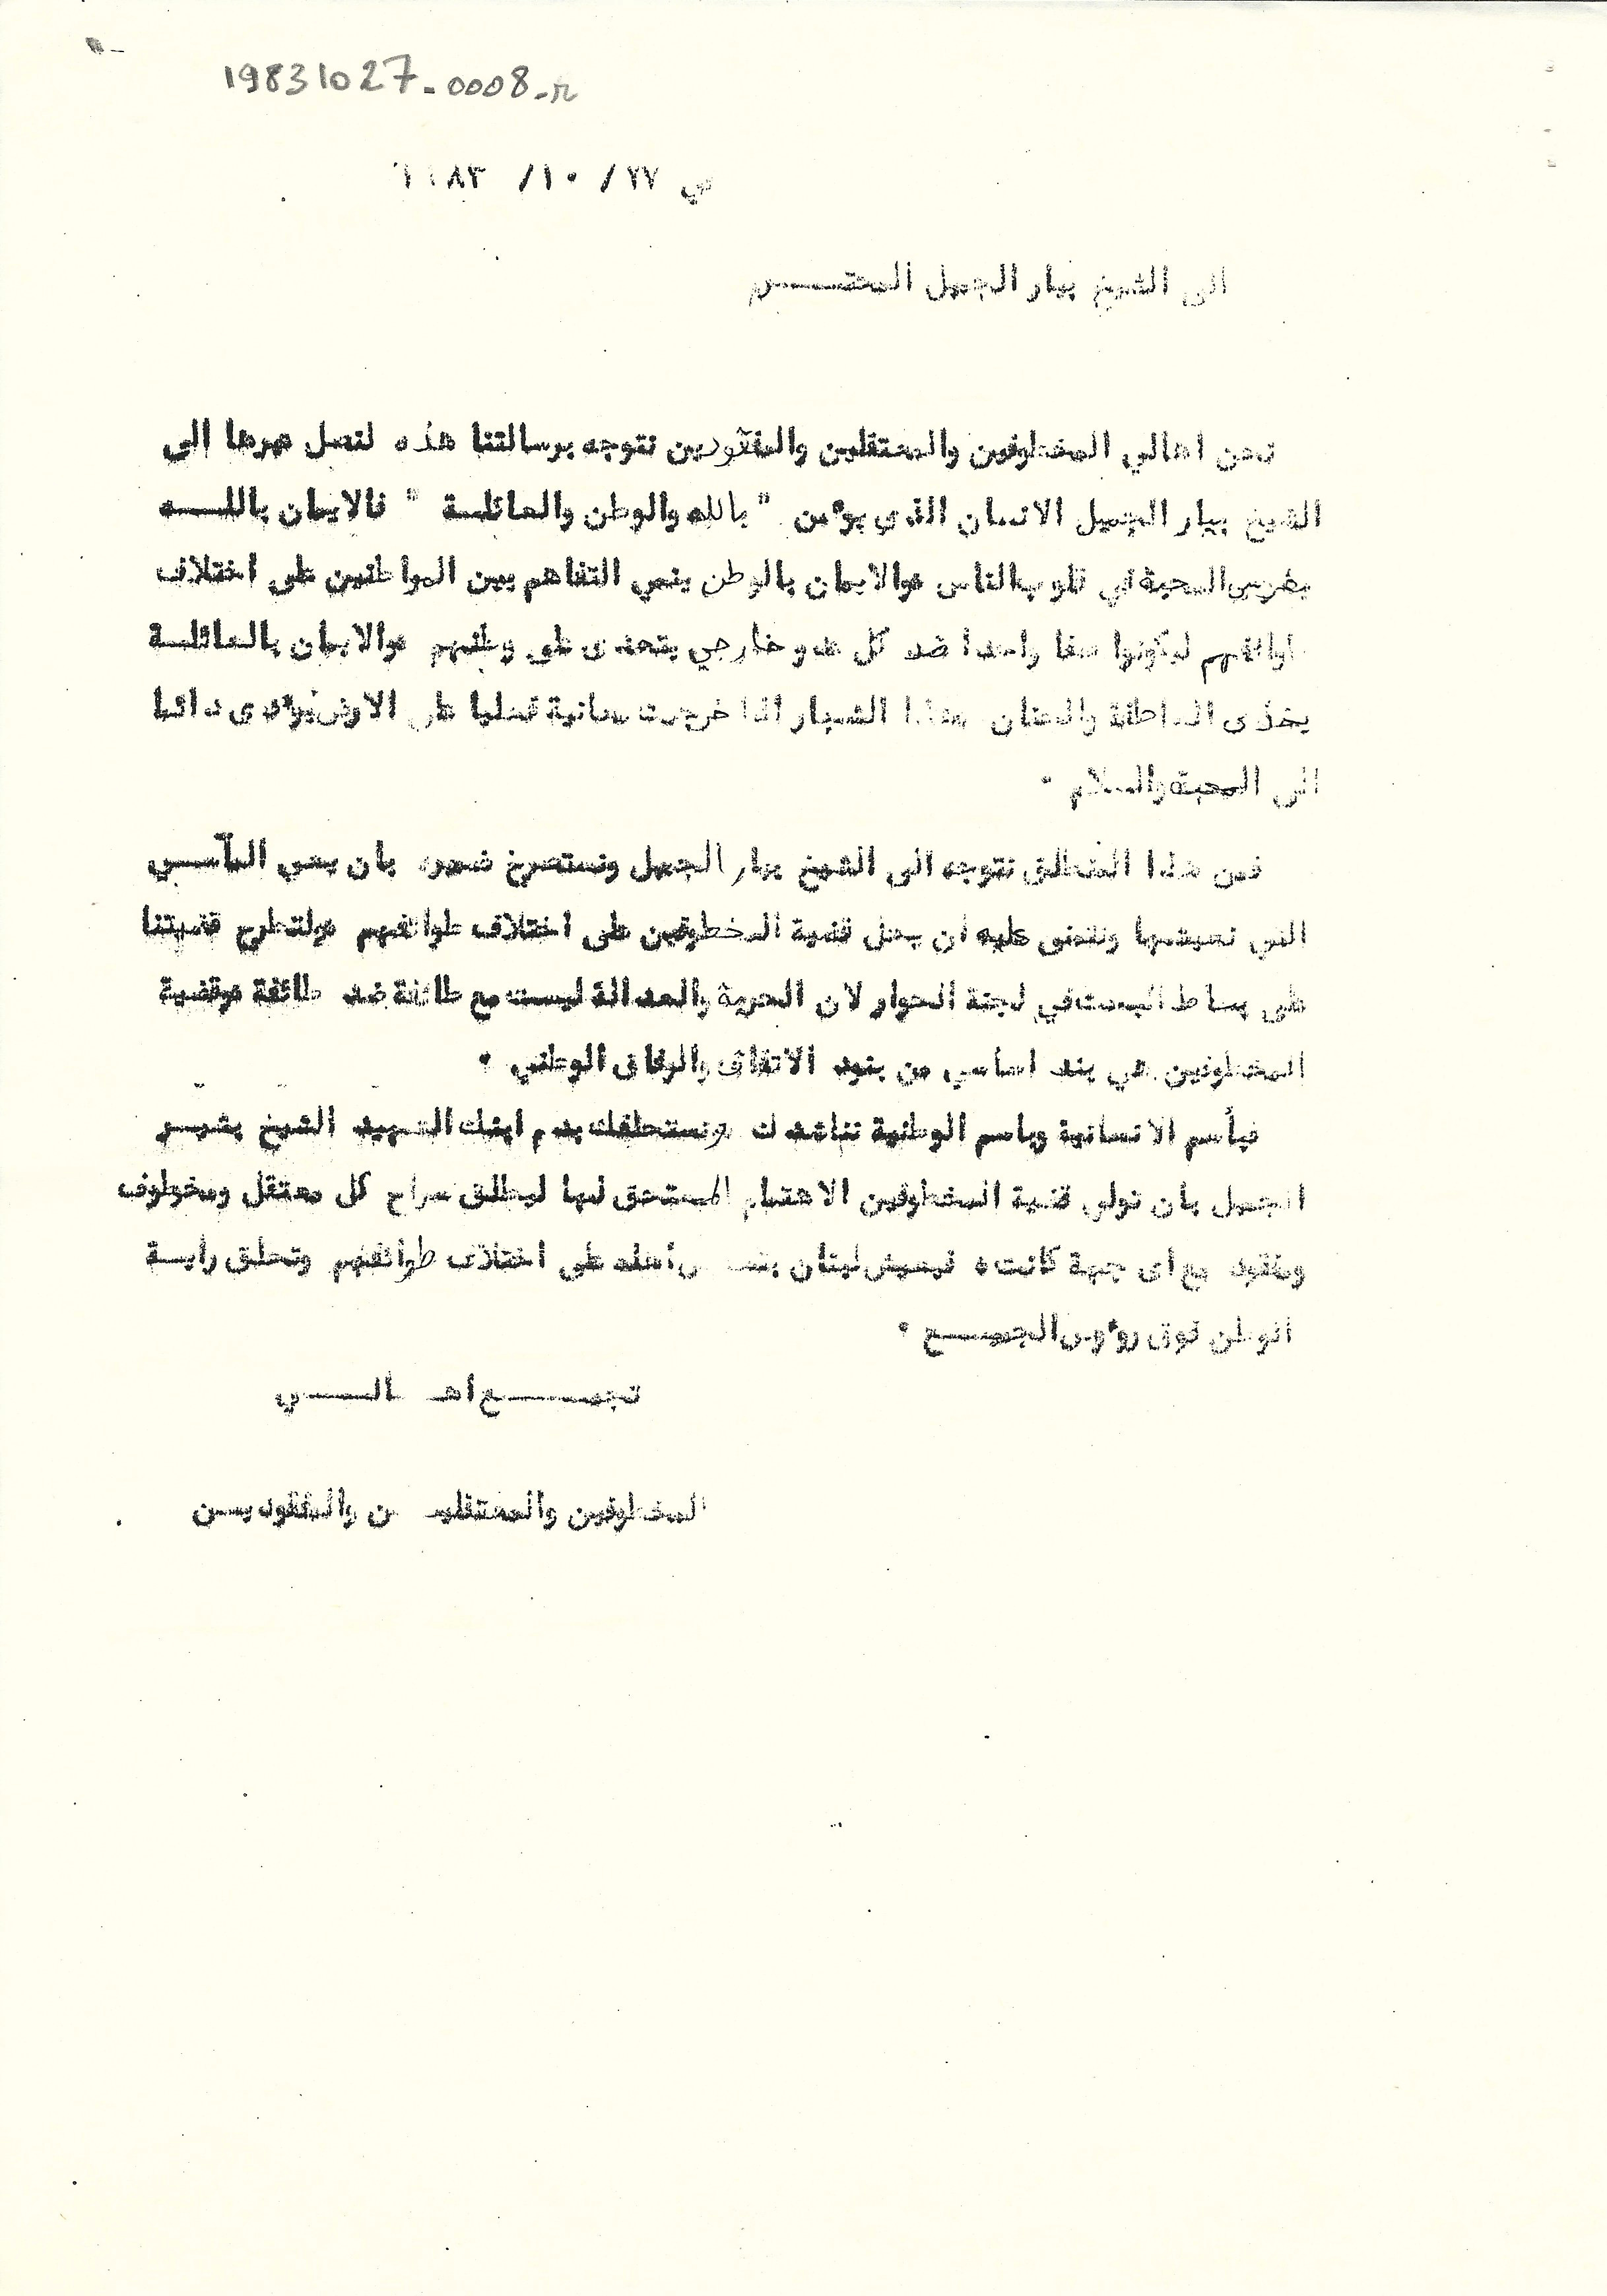 19831027-0008-r
في ٢٧ /١٠/ ١٩٨٣
الى الشيخ بيار الجميل المحتـــــرم
نحن اهالي المخطوفين والمعتقلين والمفقودين نتوجه برسالتنا هذه لنصل عبرها الى
الشيخ بيار الجميل الانسان الذي يؤمن " بالله والوطن والعائلـة " فالايمان باللـــه
يغرس المحبة في قلوب الناس والايمان بالوطن ينمي التفاهم بين المواطنين على اختلاف
طوائفهم ليكونوا صفا واحدا ضد كل عدو خارجي يتعدى على وطنهم والايمان بالعائلـة
يغذى العاطفة والحنان هذا الشعار اذا فعليا على الارض يؤدى دائما
الى المحبة والسلام ٠
فمن هذا المنطلق نتوجه الى الشيخ بيار الجميل ونستصرخ ضميره بان يعي المآسـي
التي نعيشها ونتمنى عليه ان يحل قضية المخطوفين على اختلاف طوائفهم ولتطرح قضيتنا
على بساط البحث في لجنة الحوار لان الحرية والعدالة ليست مع طائفة ضد طائفة وقضية
المخطوفين هي بند اساسي من بنود الاتفاق والوفاق الوطني ٠
فبأسم الانسانية وباسم الوطنية نناشدك ونستحلفك بدم ابنك الشهيد الشيخ بشيـر
الجميل بان تولي قضية المخطوفين الاهتمام المستحق لها ليطلق سراح كل معتقل ومخطوف
ومفقود مع اى جهة كانت ، فيعيش لبنان أهله على اختلاف طوائفهم وتحلق رايـة
الوطن فوق رؤوس الجميــع ٠
تجمــــع اهـ الــــي
المخطوفين والمعتقليـ ن والمفقوديـن